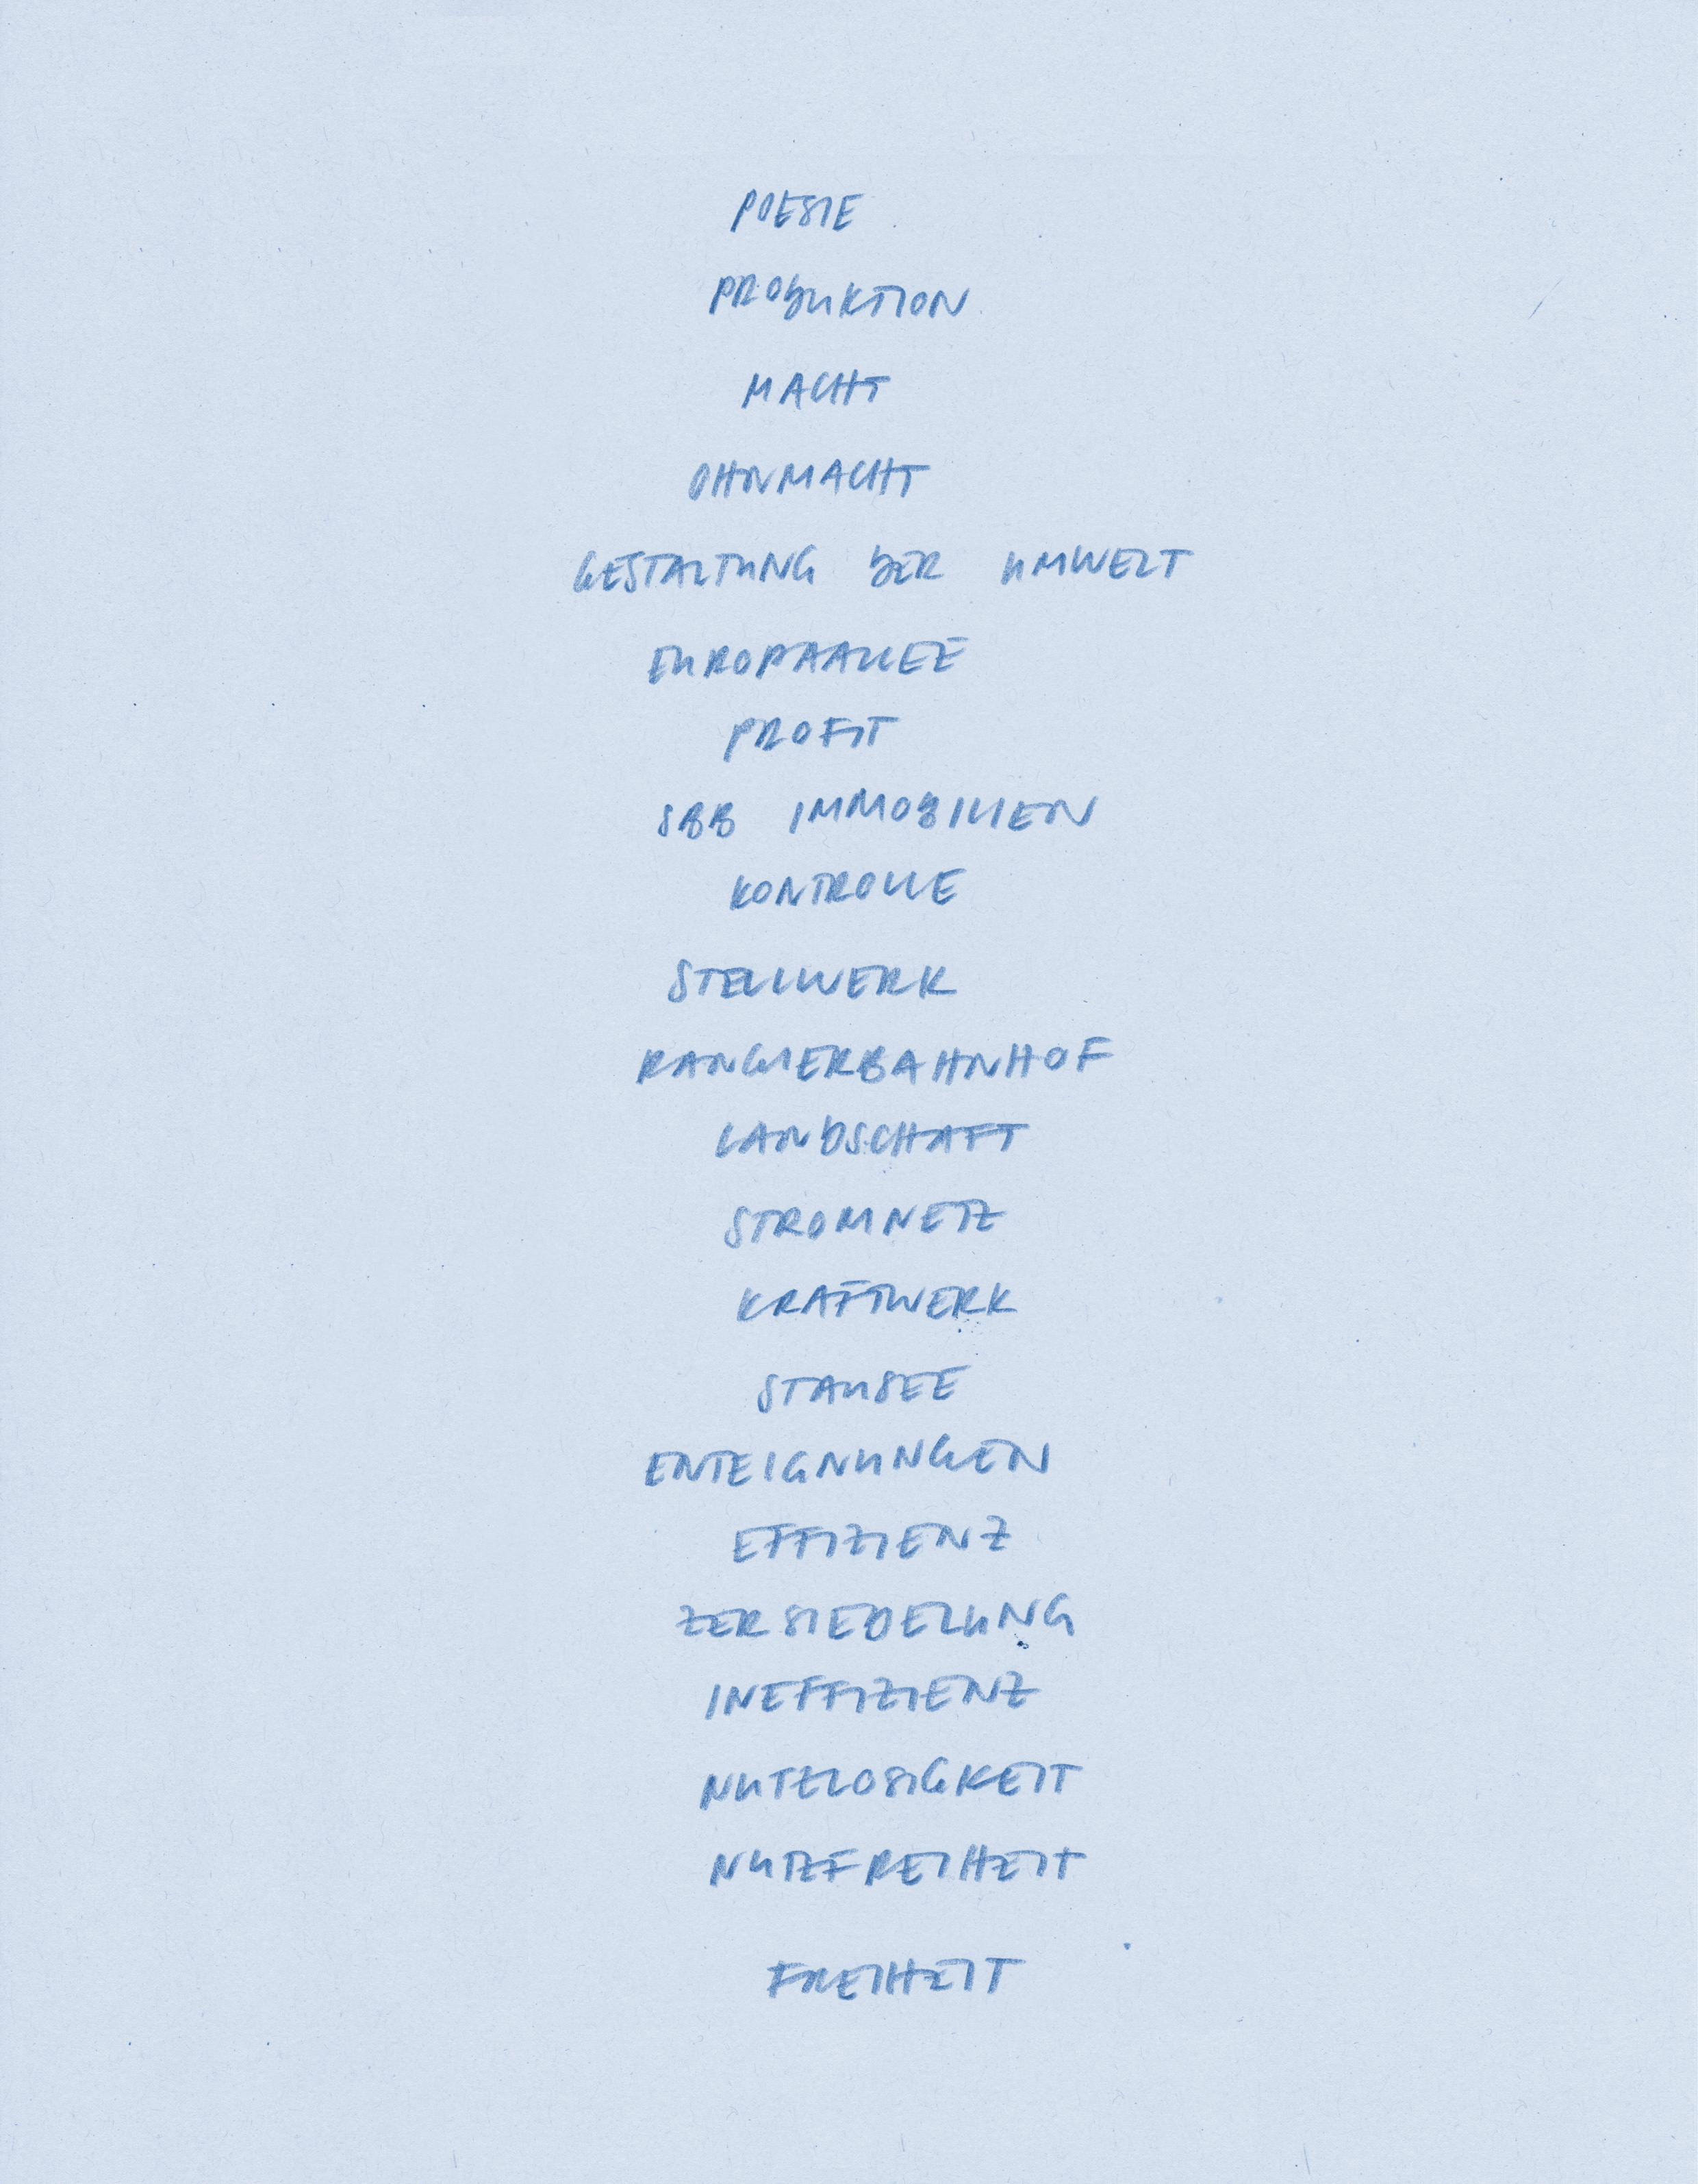 POESIE
PRODUKTION
MACHT
OHNMACHT
GESTALTUNG DER UMWELT
EUROPAALLEE
PROFIT
SBB IMMOBILIEN
KONTROLLE
STELLWERK
RANGIERBAHNHOF
LANDSCHAFT
STROMNETZ
KRAFTWERK
STAUSEE
ENTEIGNUNGEN
EFFIZIENZ
ZERSIEDELUNG
INEFFIZIENZ
NUTZLOSIGKEIT
NUTZFREIHEIT
FREIHEIT